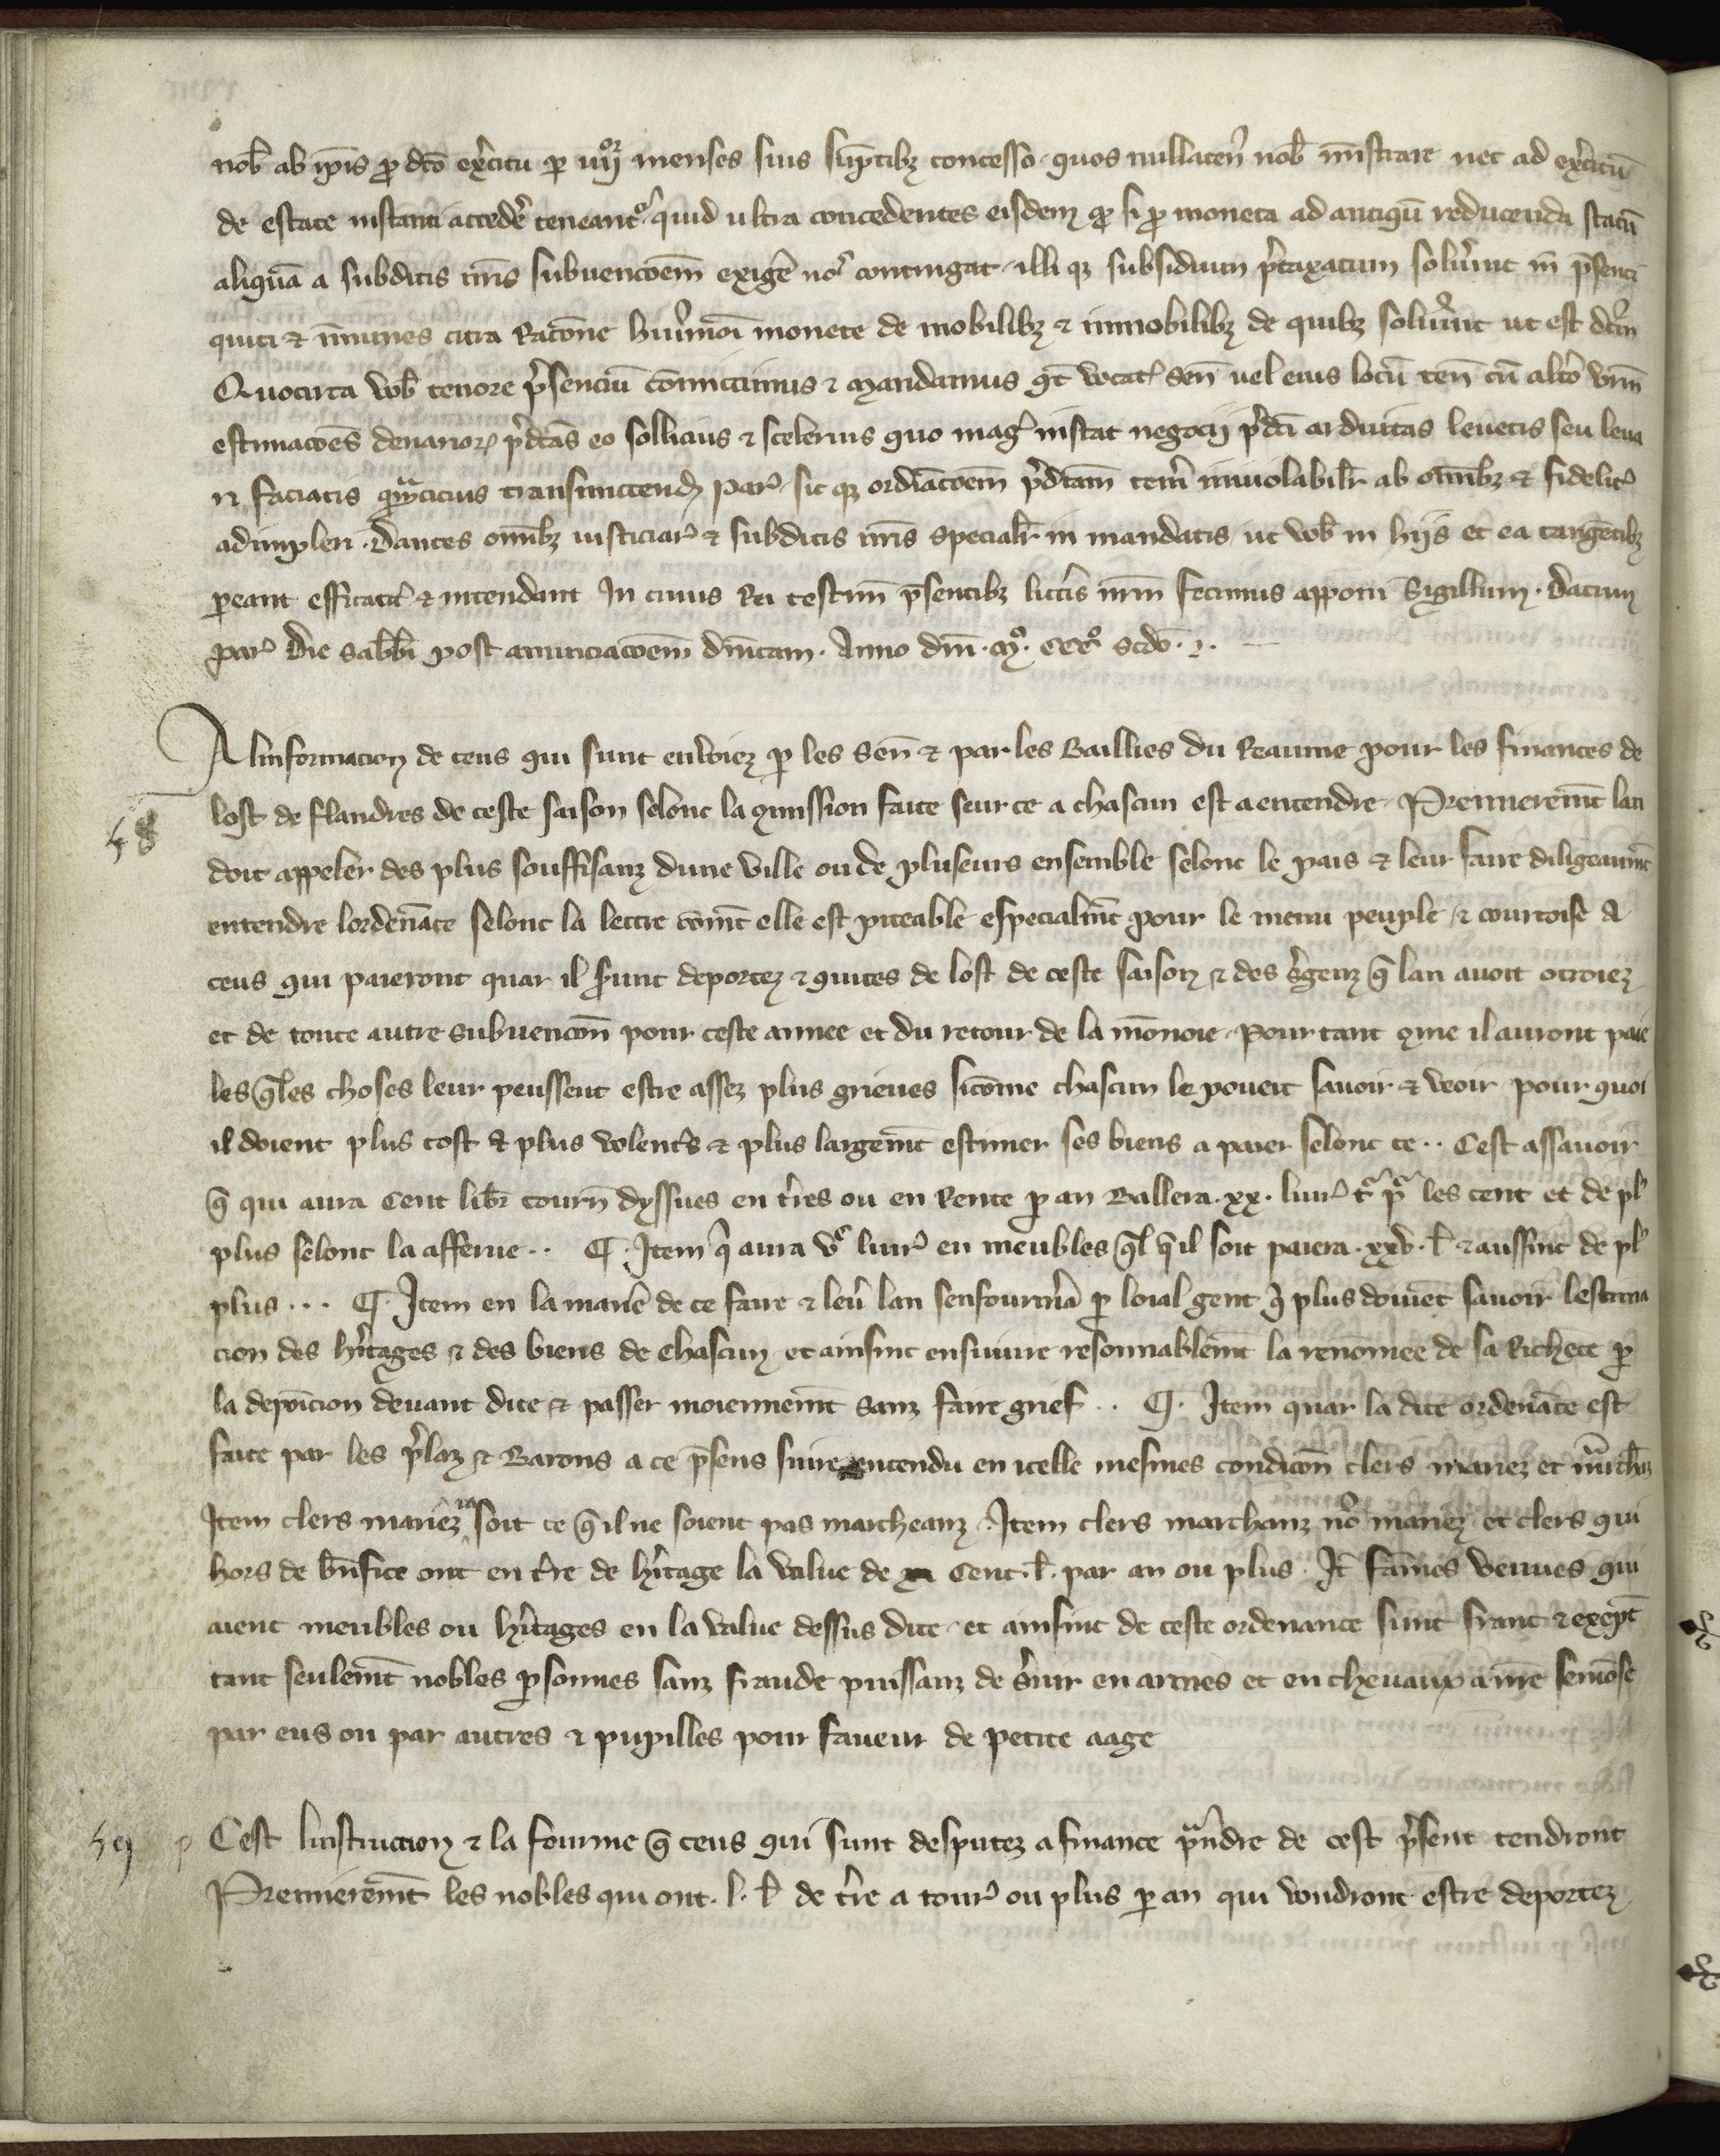 nob̄ ab ip̄is ꝓ dc̄o ex̄citu ꝑ iiij^or menses suis sūptibꝫ concesso · quos nullaten̄ nob̄ mīstrare nec ad ex̄citū
de estate instanti acceder̄ teneant^r quid ultra concedentes eisdem ꝙ si ꝓ moneta ad antiqū reducenda statū
aliquā a subditis nr̄is subuencōem exiger̄ nos contingat · illi qꝫ subsidium p̄taxatum solūint īn p̄senti
quiti ⁊ īmunes citra Racōne hui^9mōi monete de mobilibꝫ ⁊ immobilibꝫ de quibꝫ solūint ut est dc̄m
Quocirca vob̄ tenore p̄senciū cōmictimus ⁊ mandamus qt̄ vocat̄ sen̄ uel eius locū ten̄ cū alt̄o vr̄m
estimacōes denarioꝝ p̄dc̄as eo sollicius ⁊ scelerius quo maḡ instat negocij p̄dc̄i arduitas leuetis seu leua
ri faciatis q^anticius transmittend̄ par̄ · sic qꝫ ordīacōem p̄dc̄am ten̄i inuiolabilr̄ ab om̄ibꝫ ⁊ fidelit̄
adimpleri · Dantes om̄ibꝫ iusticiar̄ ⁊ subditis nr̄is specialr̄ in mandatis ut vob̄ in hijs et ea tangētibꝫ
ꝑeant efficacit̄ ⁊ intendant In cuius Rei testim̄ p̄sentibꝫ litt̄is nr̄m fecimus apponi Sigillum · Datum
par̄ die sabb̄i post anunciacōem dn̄icam · Anno dn̄i · m^o · ccc^o scd̄o ·
Alinformacion de ceus qui sunt enuoiez ꝑ les sen̄ ⁊ par les Baillies du Reaume pour les finances de
48
lost de flandres de ceste saison selonc la ꝯmission faite seur ce a chascun est a entendre · Premieremt̄ lan
doit appeler des plus souffisanz dune ville ou de pluseurs ensemble selonc le pais ⁊ leur faire diligeaumt̄
entendre lordenāce selonc la lettre cōmt̄ elle est piteable especialmt̄ pour le menu peuple · ⁊ courtoise a
ceus qui paieront quar il s̄unt deportez ⁊ quites de lost de ceste saison ⁊ des s̄genz q̄ lan auoit otroiez
et de toute autre subuencōn pour ceste annee et du retour de la mōnoie · pour tant ꝯme il auront paie
les q̄les choses leur peussent estre assez plus grieues sicōme chascun le poueit sauoir ⁊ veoir · pour quoi
il doient plus tost ⁊ plus volent̄s ⁊ plus largemt̄ estimer ses biens a paier selonc ce ·· Cest assauoir
q̄ qui aura Cent libr̄ tourn̄ dyssues en t̄res ou en Rente ꝑ an Ballera · xx · liur̄ t^r p^r les cent et de pl^9
plus selonc la afferue ·· ¶ · Item q^i aura v^c liur̄ en meubles q̄l q̄ il soit paiera · xxv · l̄ ⁊ aussint de pl^9
plus ··· ¶ · Item en la manie̅ de ce faire ⁊ leū lan senfourmā ꝑ loial gent q^i plus doiuēt sauoir lestima
cion des h̄itages ⁊ des biens de chascun · et ainsint ensuiure resonnablemt̄ la renōmee de sa Richece ꝑ
la depoīcion deuant dite ⁊ passer moiennemt̄ sanz faire grief ·· ¶ · Item quar la dite ordenāce est
faite par les p̄laz ⁊ Barons a ce p̄sens entendu en icelle mesmes condicōn clers mariez et m^archāz
Item clers mariez ia soit ce q̄ il ne soient pas marcheanz · Item clers marchanz nō mariez · et clers qui
hors de bn̄fice ont en t̄re de h̄itage la value de Cent · l̄ · par an ou plus · It̄ fāmes veuues qui
aient meubles ou h̄itages en la value dessus dite · et ainsint de ceste ordenance sunt franc ⁊ exept̄
tant seulemt̄ nobles ꝑsonnes sanz fraude puissanz de s̄uir en armes et en cheuaux a nr̄e semōse
par eus ou par autres ⁊ pupilles pour faueur de petite aage
49 Cest linstruction ⁊ la fourme q̄ ceus qui sunt desputez a finance p^andre de cest p̄sent tendront
Premieremt̄ les nobles qui ont · l · l̄ de t̄re a tour̄ ou plus ꝑ an qui voudront estre deportez